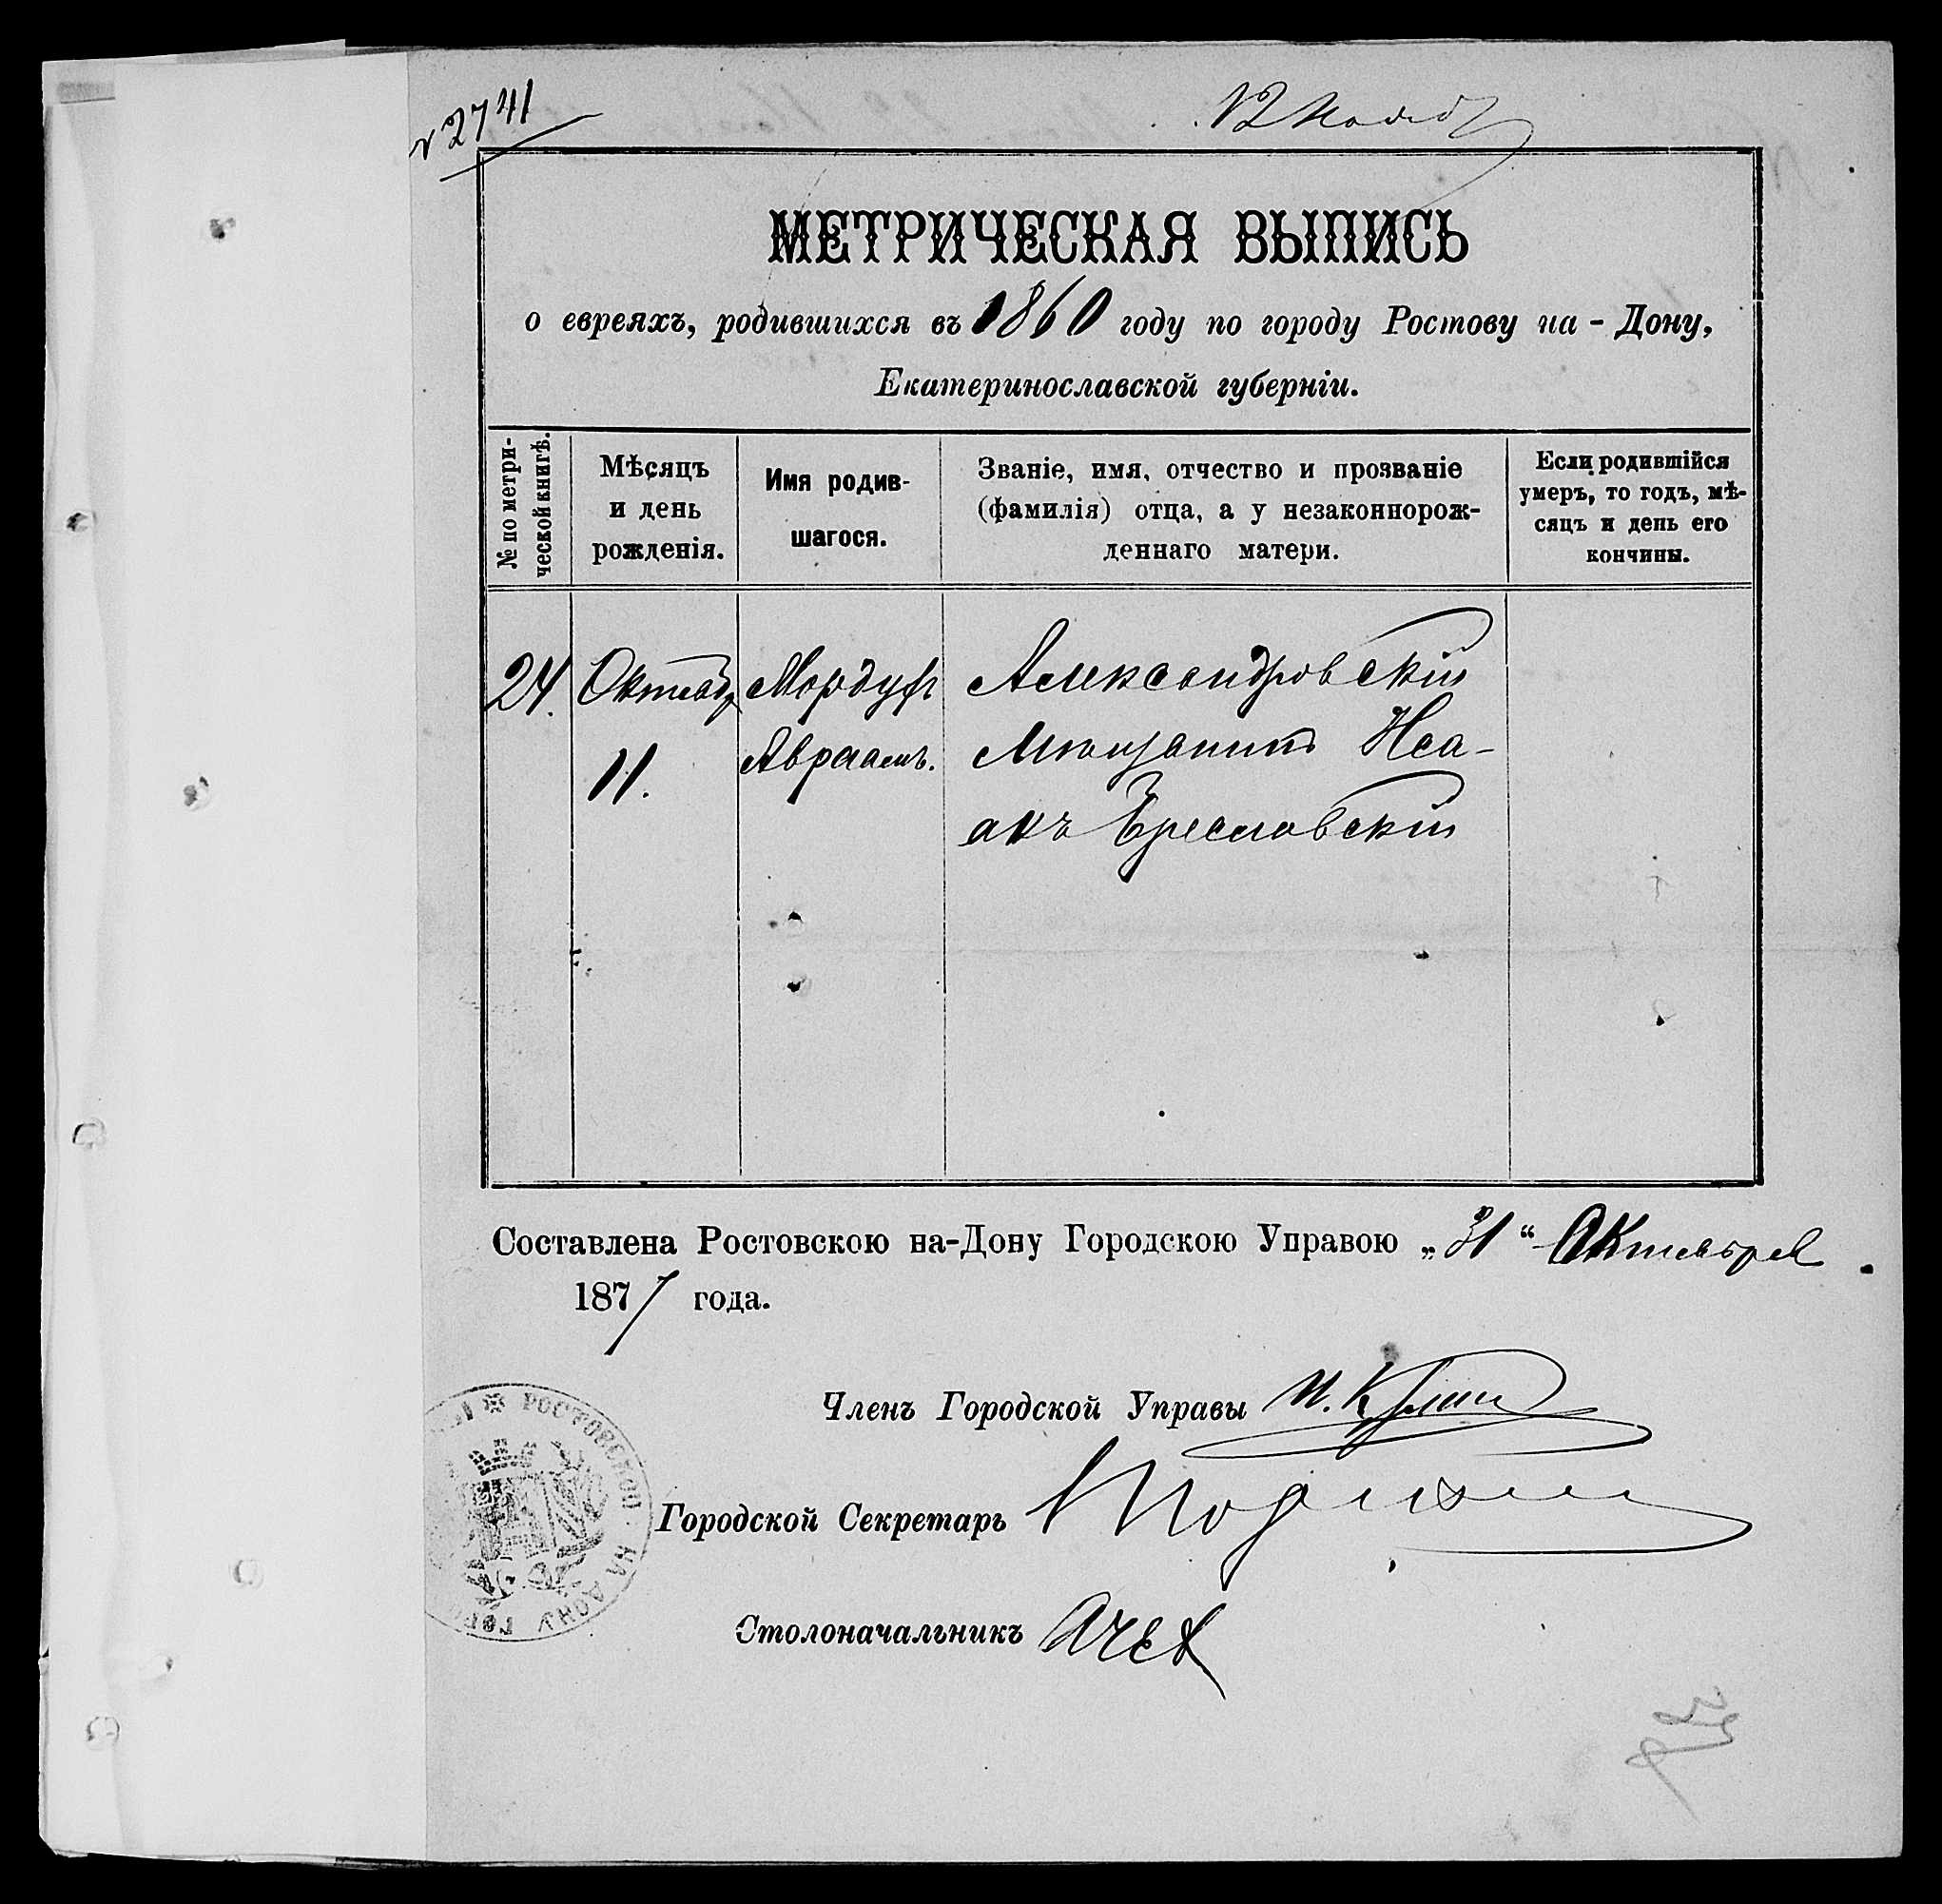 № 2741
12 Нояб
МЕТРИЧЕСКАЯ ВЫПИСЬ
о евреяхъ, родившихся въ 1860 году по городу Ростову на-Дону,
Екатеринославской губерніи.
№ по метри-
ческой книгѣ.
Мѣсяцъ
и день
рожденія.
Имя родив-
шагося.
Званіе, имя, отчество и прозваніе
(фамилія) отца, а у незаконнорож-
деннаго матери.
Если родившійся
умеръ, то годъ, мѣ-
сяцъ и день его
кончины.
24.
Октябр
11.
Мордух
Авраамъ.
Александровскій
Мѣщанинъ Иса-
акъ
Составлена Ростовскою на-Дону Городскою Управою „31“ Октября.
1877 года.
Членъ Городской Управы
Городской Секретарь
Столоначальникъ
РОСТОВСКОЙ НА ДОНУ ГОР